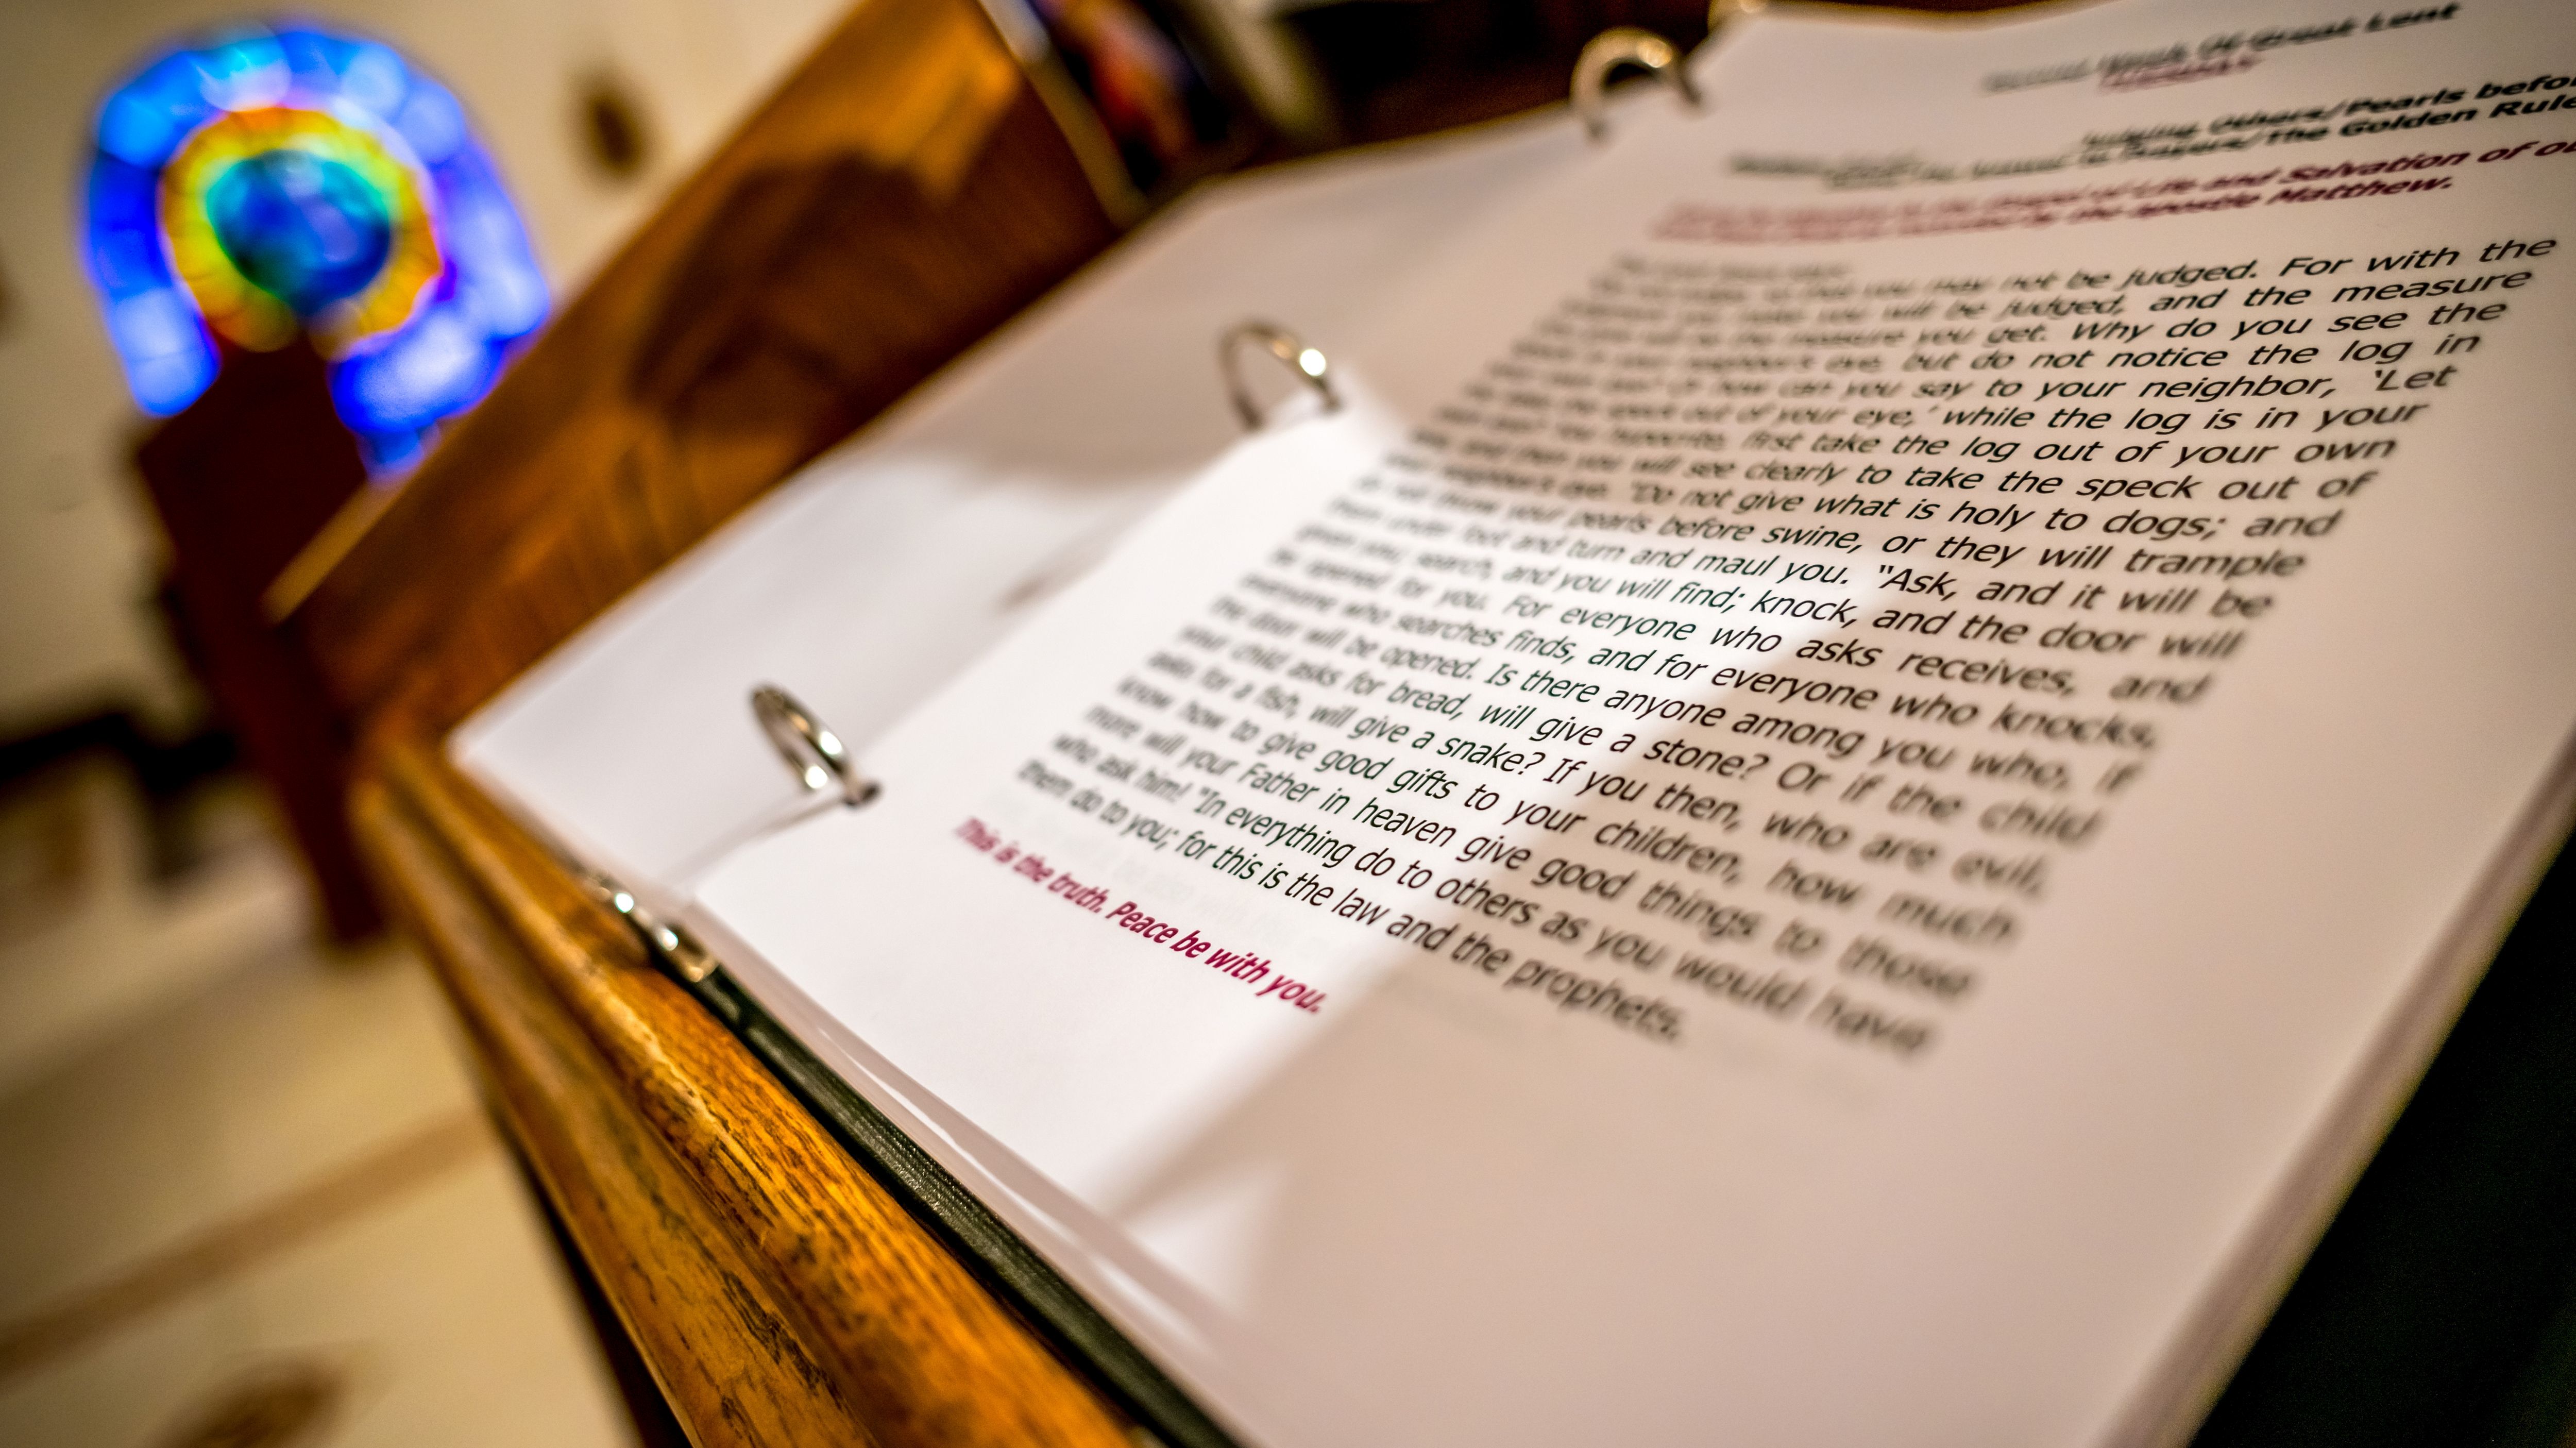 Week Of Great Lent
Judging Others/Pearls befo
Answer to Prayers/The Golden Rule
Life and Salvation of ou
by the apostle Matthew.
so that you may not be judged. For with the
you make you will be judged, and the measure
be the measure you get. Why do you see the
in your neighbor's eye, but do not notice the log in
Or how can you say to your neighbor, 'Let
the speck out of your eye,' while the log is in your
You hypocrite, first take the log out of your own
and then you will see clearly to take the speck out of
your neighbor's eye. "Do not give what is holy to dogs; and
do not throw your pearls before swine, or they will trample
them under foot and turn and maul you. "Ask, and it will be
given you; search, and you will find; knock, and the door will
be opened for you. For everyone who asks receives, and
everyone who searches finds, and for everyone who knocks,
the door will be opened. Is there anyone among you who, if
your child asks for bread, will give a stone? Or if the child
asks for a fish, will give a snake? If you then, who are evil,
know how to give good gifts to your children, how much
more will your Father in heaven give good things to those
who ask him! "In everything do to others as you would have
them do to you; for this is the law and the prophets.
This is the truth. Peace be with you.